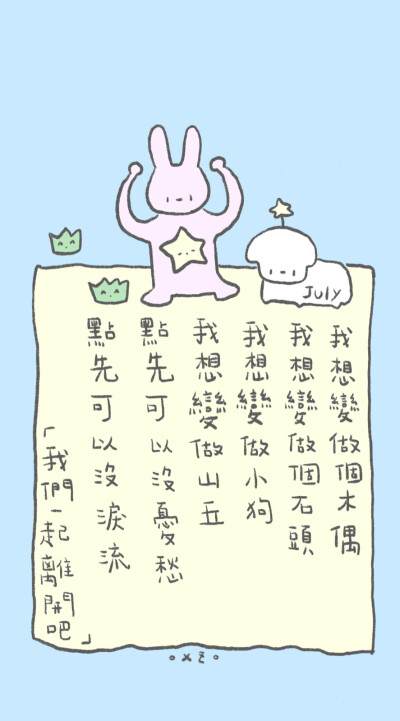 July
我想變做個木偶
我想變做個石頭
我想變做小狗
我想變做山丘
點先可以沒憂愁
點先可以沒淚流
「我們一起離開吧」